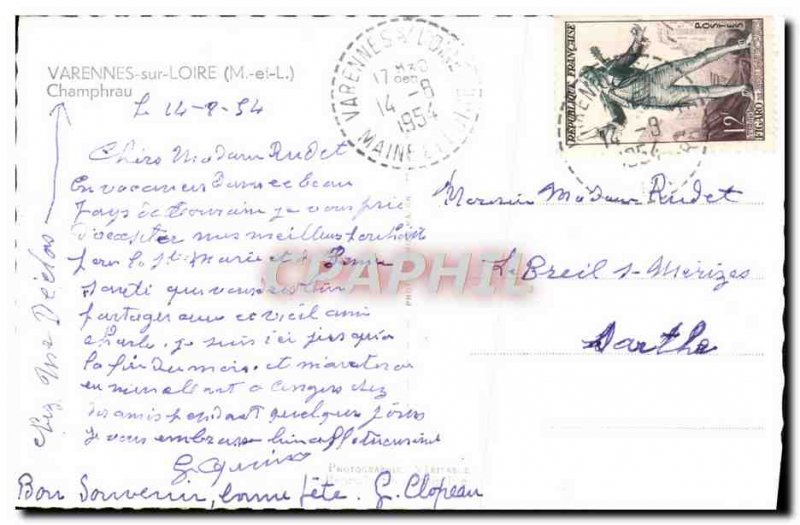 VARENNES-sur-LOIRE (M.-et-L.)
Champhrau
Le 14-8-54
Chers Madame Rudet
En vacances dans ce beau
Pays de Touraine je vous prie
d'accepter mes meilleurs souhaits
pour la Ste Marie et Bonne
santé que vous
partager avec ce vieil ami
Charles. je suis ici jusqu'à
la fin du mois. et m'arreterai
en m'en allant a Angers chez
des amis pendant quelques jours
je vous embrasse bien affectueusement
G.
Bon Souvenir, bonne fête. G. Clopeau
Chez Mme
VARENNES S/ LOIRE
17 H30
14 -8
1954
MAINE ET LOIRE
REPUBLIQUE FRANÇAISE
POSTES
12F
FIGARO
VARENNES
14 -8
1954
Monsieur Madame Rudet
Le Breil s- Merizes
Sarthe
CPAPHIL
PHOTOGRAPHIE VERITABLE